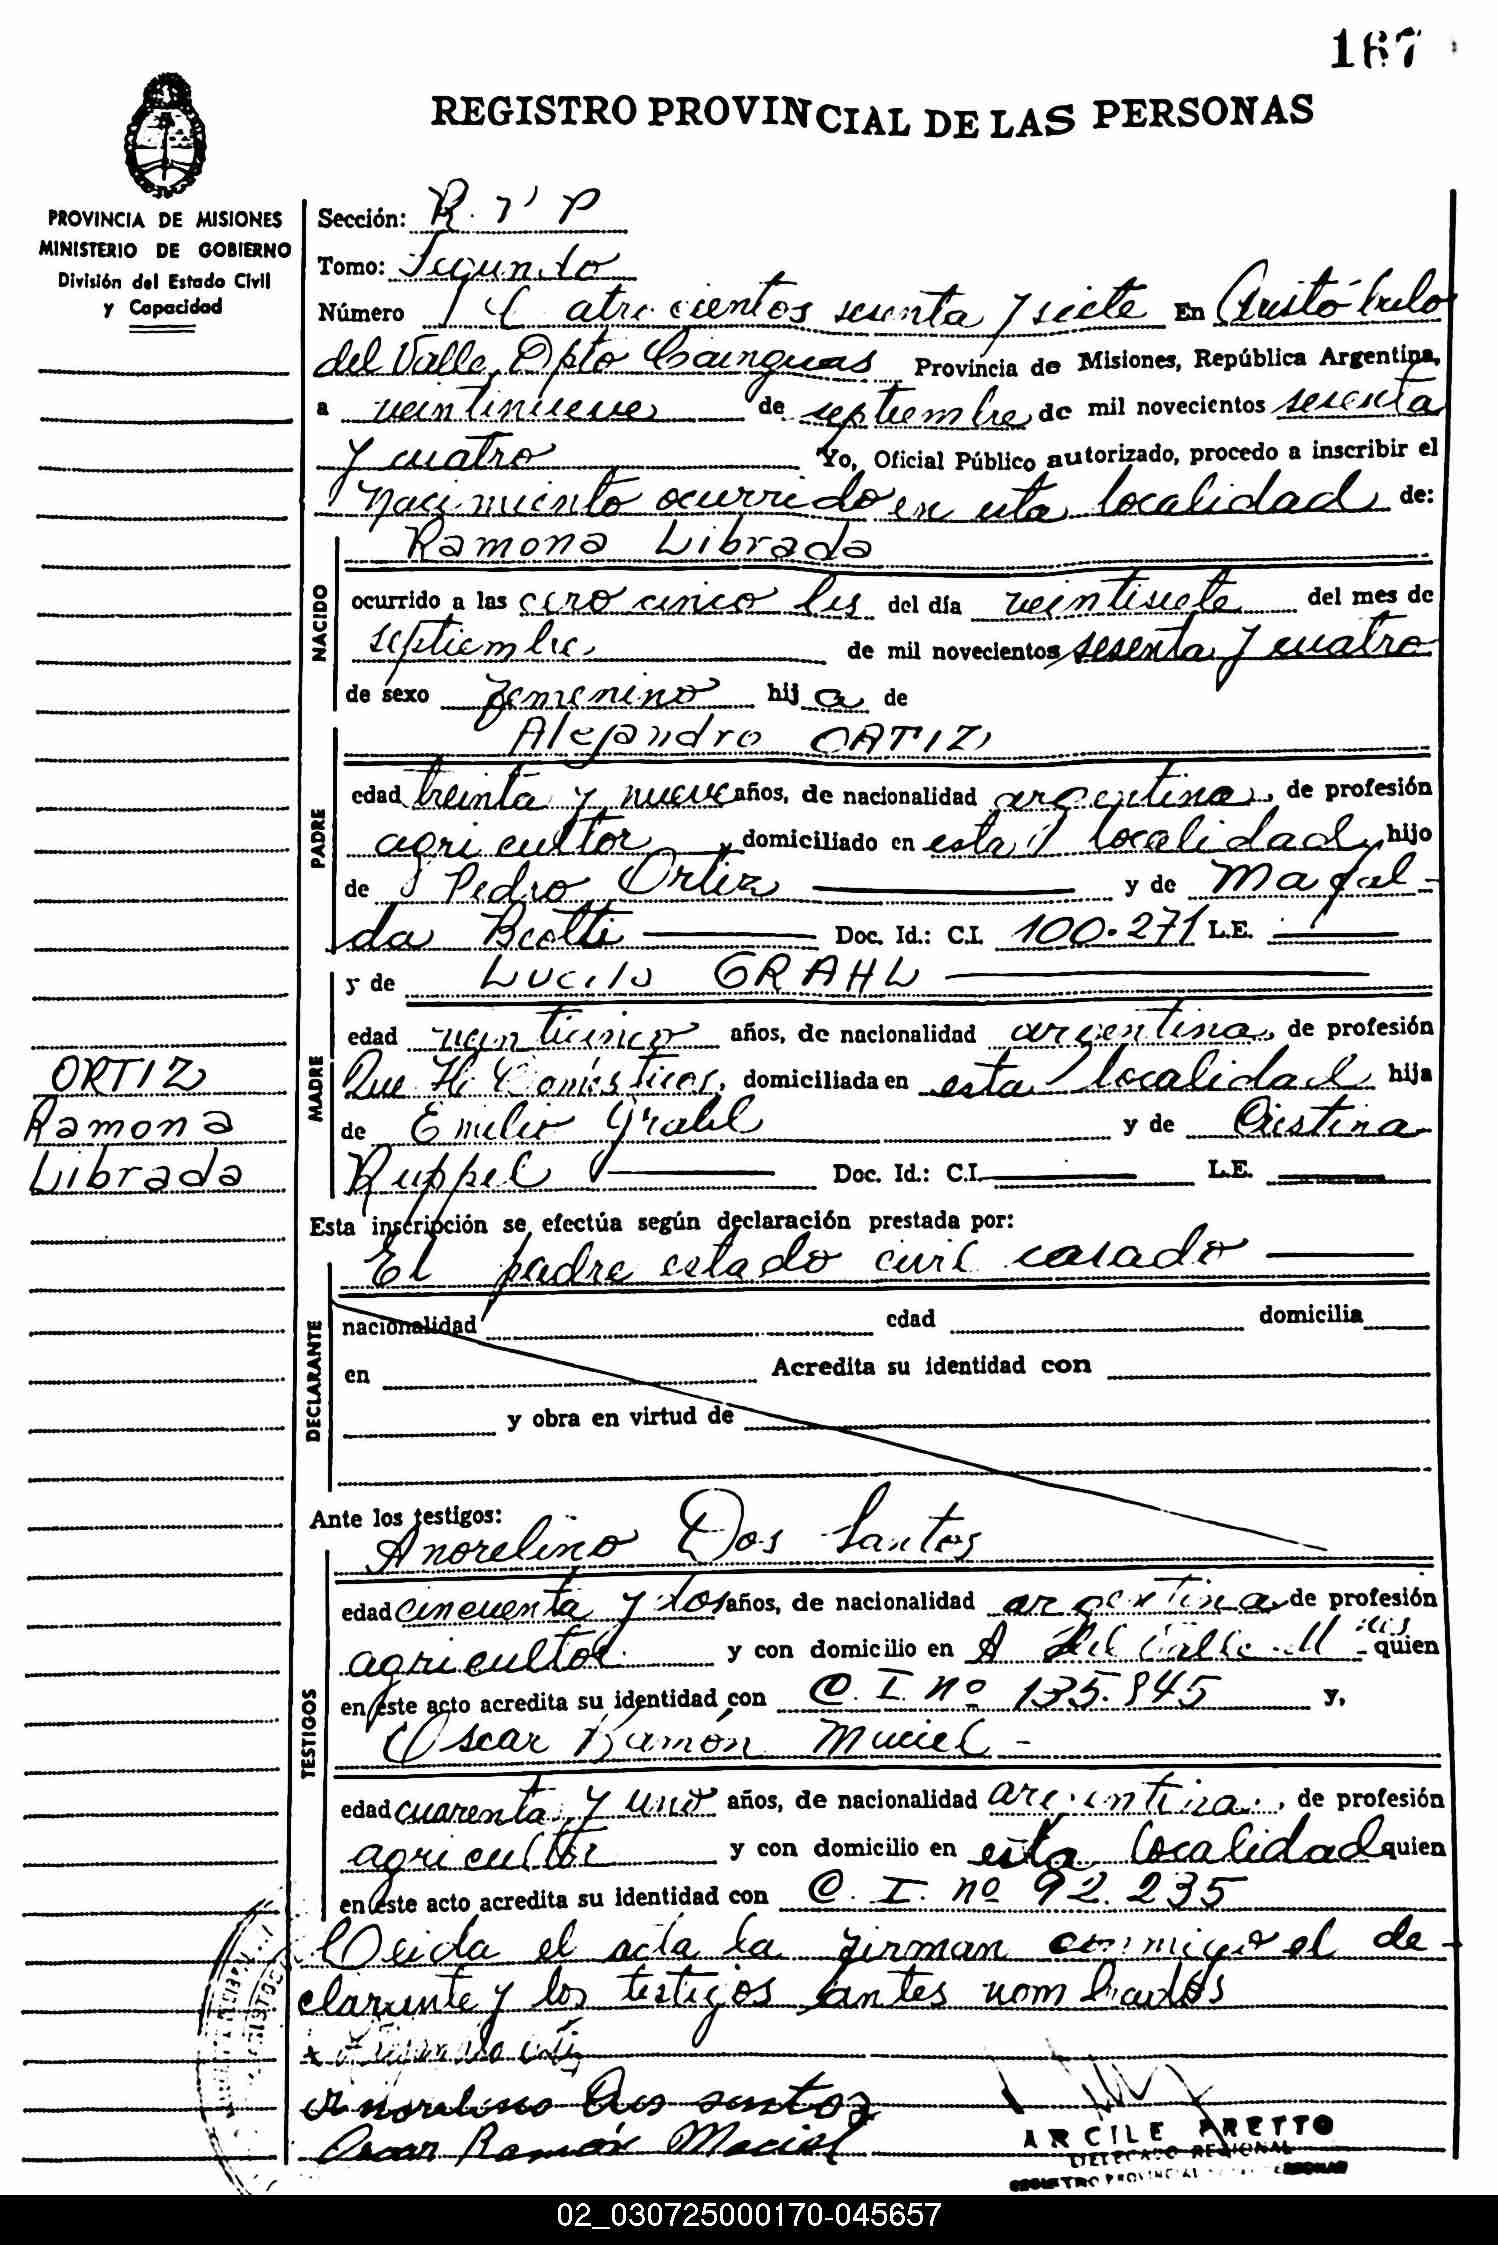 167
REGISTRO PROVINCIAL DE LAS PERSONAS
PROVINCIA DE MISIONES
MINISTERIO DE GOBIERNO
División del Estado Civil
y Capacidad
Sección: R. 7' P
Tomo: Segundo
Número cuatrocientos sesenta y siete En Aristóbulo
del Valle, Dpto Cainguas Provincia de Misiones, República Argentina,
a veintinueve de septiembre de mil novecientos sesenta
y cuatro Yo, Oficial Público autorizado, procedo a inscribir el
nacimiento ocurrido en esta localidad de:
NACIDO
Ramona Librada
ocurrido a las cero cinco hs del día veintisiete del mes de
septiembre de mil novecientos sesenta y cuatro
de sexo femenino hija de
PADRE
Alejandro ORTIZ
edad treinta y nueve años, de nacionalidad argentina, de profesión
agricultor domiciliado en esta localidad, hijo
de Pedro Ortiz y de Mafal-
da Beotti Doc. Id.: C.I. 100.271 L.E.
MADRE
y de Lucila GRAHL
edad veinticinco años, de nacionalidad argentina, de profesión
Que H. Domésticos, domiciliada en esta localidad hija
de Emilio Grahl y de Cristina
Ruppel Doc. Id.: C.I. L.E.
ORTIZ
Ramona
Librada
Esta inscripción se efectúa según declaración prestada por:
El padre estado civil casado
DECLARANTE
nacionalidad edad domicilia
en Acredita su identidad con
y obra en virtud de
Ante los testigos:
TESTIGOS
Anorelino Dos Santos
edad cincuenta y dos años, de nacionalidad argentina de profesión
agricultor y con domicilio en A del Valle Mnes quien
en este acto acredita su identidad con C. I. nº 135.845 y,
Oscar Ramón Maciel -
edad cuarenta y uno años, de nacionalidad argentina, de profesión
agricultor y con domicilio en esta localidad quien
en este acto acredita su identidad con C. I. nº 92.235
Leida el acta la firman conmigo el de-
clarante y los testigos antes nombrados
Anorelino Dos santos
Oscar Ramón Maciel
ARCILE PRETTO
DELEGADO REGIONAL
REGISTRO PROVINCIAL
02_030725000170-045657